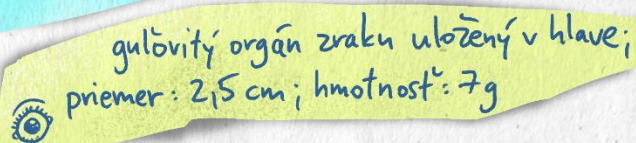 guľovitý orgán zraku uložený v hlave;
priemer: 2,5 cm; hmotnosť: 7g